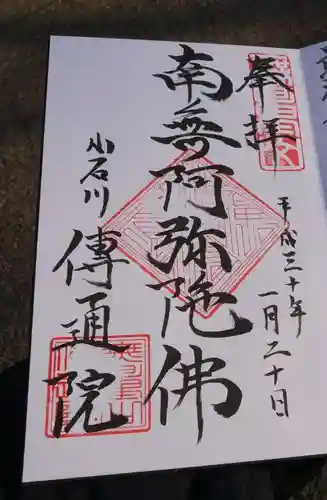 奉拝
平成三十年
一月二十日
南無阿弥陀佛
小石川
傳通院